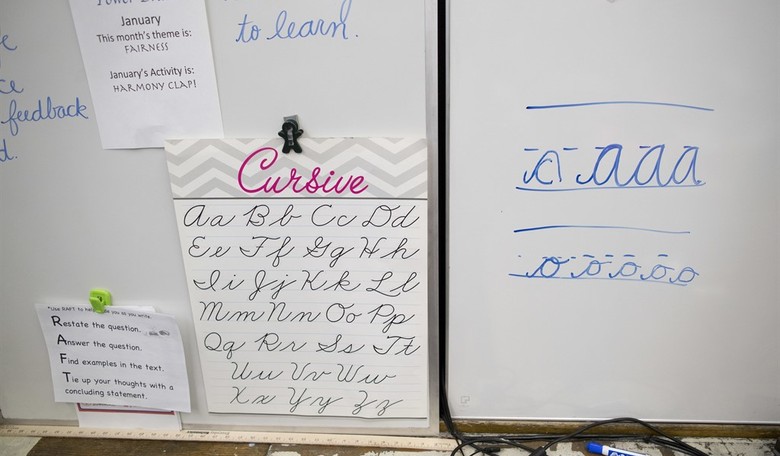 January
This month's theme is:
FAIRNESS
January's Activity is:
HARMONY CLAP!
to learn.
feedback
Cursive
Aa Bb Cc Dd
Ee Ff Gg Hh
Ii Jj Kk Ll
Mm Nn Oo Pp
Qq Rr Ss Tt
Uu Vv Ww
Xx Yy Zz
*Use RAFT to help guide you as you write.
Restate the question.
Answer the question.
Find examples in the text.
Tie up your thoughts with a
concluding statement.
a a a a
o o o o o